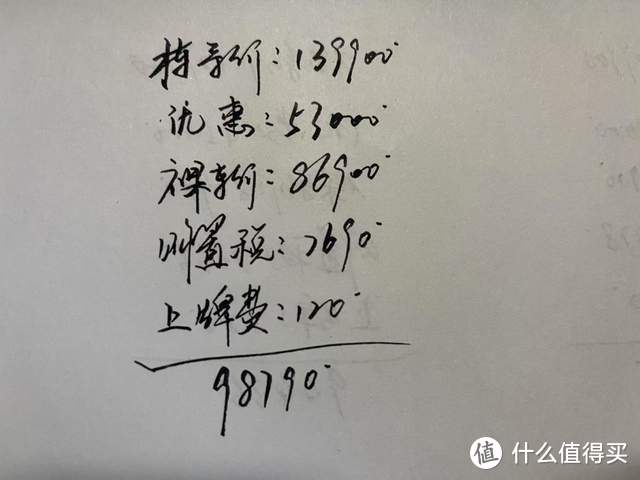 指导价:139900
优惠:53000
裸车价:86900
购置税:7690
上牌费:120
98790
值 什么值得买